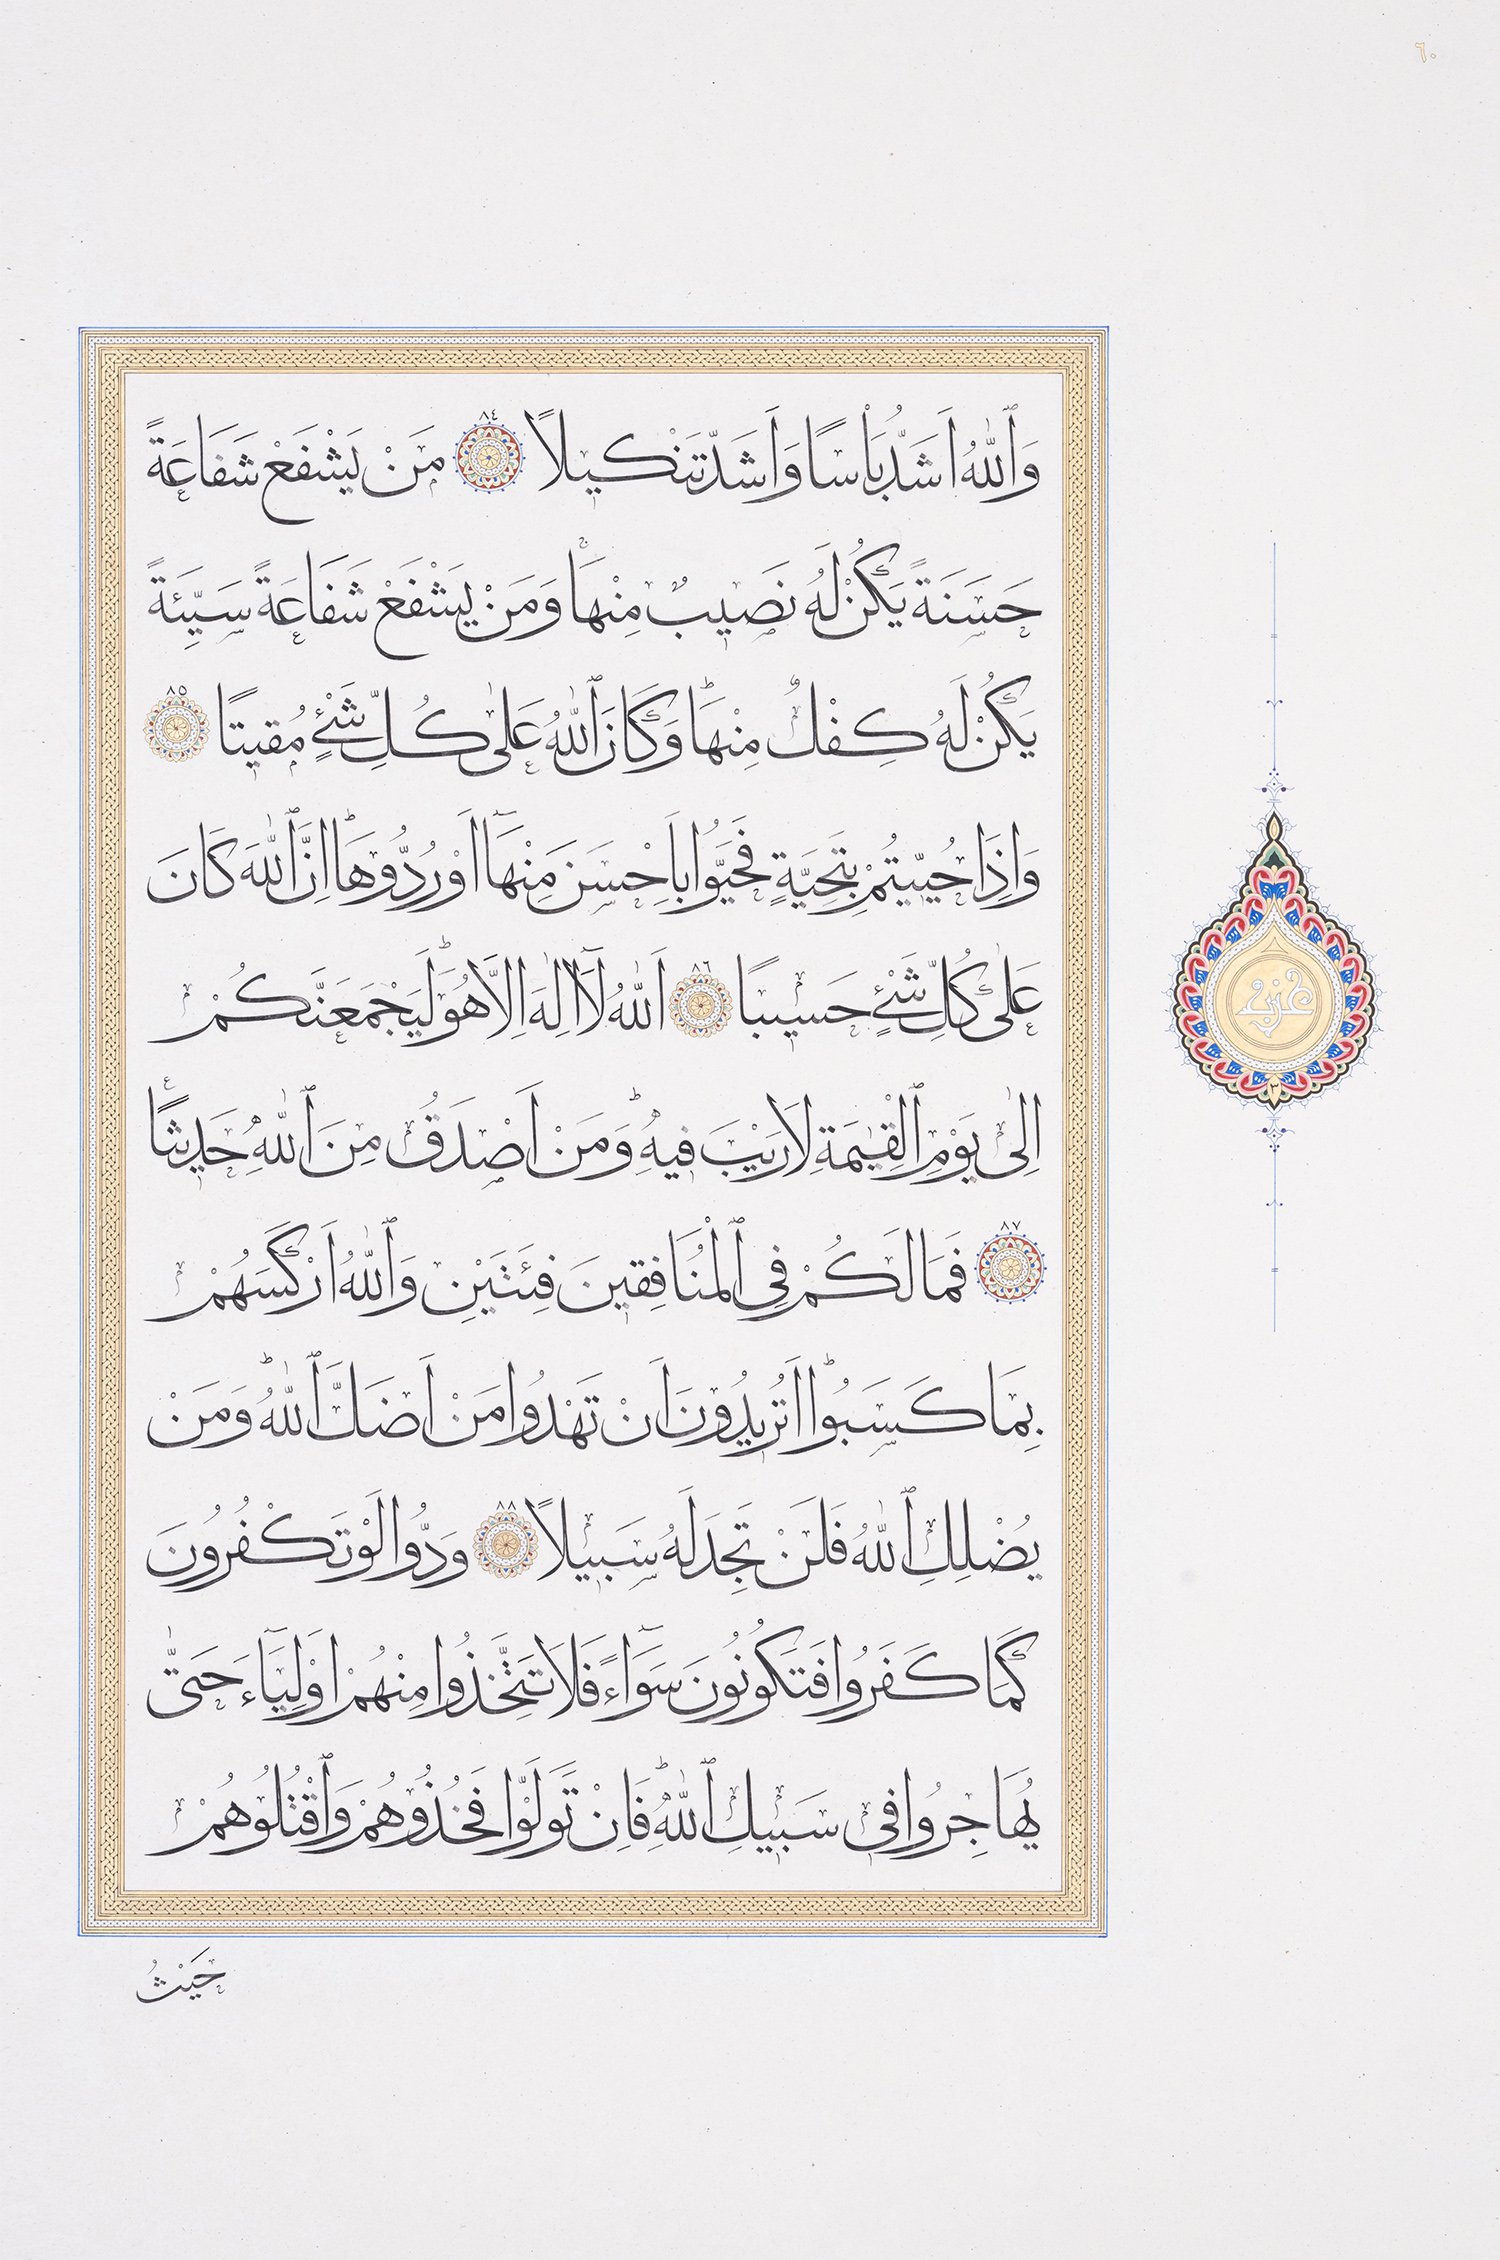 ٦٠
وَٱللّٰهُ اَشَدُّ بَأْسًا وَاَشَدُّ تَنْكيلًا ٨٤ مَنْ يَشْفَعْ شَفَاعَةً
حَسَنَةً يَكُنْ لَهُ نَصيبٌ مِنْهَاۚ وَمَنْ يَشْفَعْ شَفَاعَةً سَيِّئَةً
يَكُنْ لَهُ كِفْلٌ مِنْهَاۜ وَكَانَ ٱللّٰهُ عَلٰى كُلِّ شَيْءٍ مُقيتًا ٨٥
وَاِذَا حُيّيتُمْ بِتَحِيَّةٍ فَحَيُّوا بِاَحْسَنَ مِنْهَآ اَوْ رُدُّوهَاۜ اِنَّ ٱللّٰهَ كَانَ
عَلٰى كُلِّ شَيْءٍ حَسيبًا ٨٦ اَللّٰهُ لَآ اِلٰهَ اِلَّا هُوَۜ لَيَجْمَعَنَّكُمْ
اِلٰى يَوْمِ ٱلْقِيٰمَةِ لَا رَيْبَ فيهِۜ وَمَنْ اَصْدَقُ مِنَ ٱللّٰهِ حَديثًا
٨٧ فَمَا لَكُمْ فِي ٱلْمُنَافِقينَ فِئَتَيْنِ وَٱللّٰهُ اَرْكَسَهُمْ
بِمَا كَسَبُواۜ اَتُريدُونَ اَنْ تَهْدُوا مَنْ اَضَلَّ ٱللّٰهُۜ وَمَنْ
يُضْلِلِ ٱللّٰهُ فَلَنْ تَجِدَ لَهُ سَبيلًا ٨٨ وَدُّوا لَوْ تَكْفُرُونَ
كَمَا كَفَرُوا فَتَكُونُونَ سَوَآءً فَلَا تَتَّخِذُوا مِنْهُمْ اَوْلِيَآءَ حَتّٰى
يُهَاجِرُوا في سَبيلِ ٱللّٰهِۜ فَاِنْ تَوَلَّوْا فَخُذُوهُمْ وَٱقْتُلُوهُمْ
حَيْثُ
حزب
٣